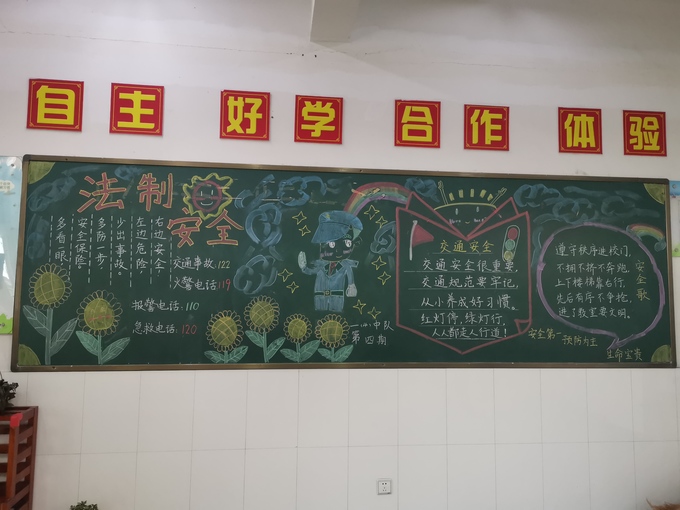 自主 好学 合作 体验
法制
安全
多看一眼,
安全保险。
多防一步
少出事故。
左边危险
右边安全
交通事故:122
火警电话:119
报警电话:110
急救电话:120
一(4)中队
第四期
交通安全
交通安全很重要,
交通规范要牢记,
从小养成好习惯。
红灯停,绿灯行,
人人都走人行道!
安全歌
遵守秩序进校门,
不拥不挤不奔跑,
上下楼梯靠右行,
先后有序不争抢,
进了教室要文明。
安全第一
预防为主
生命宝贵